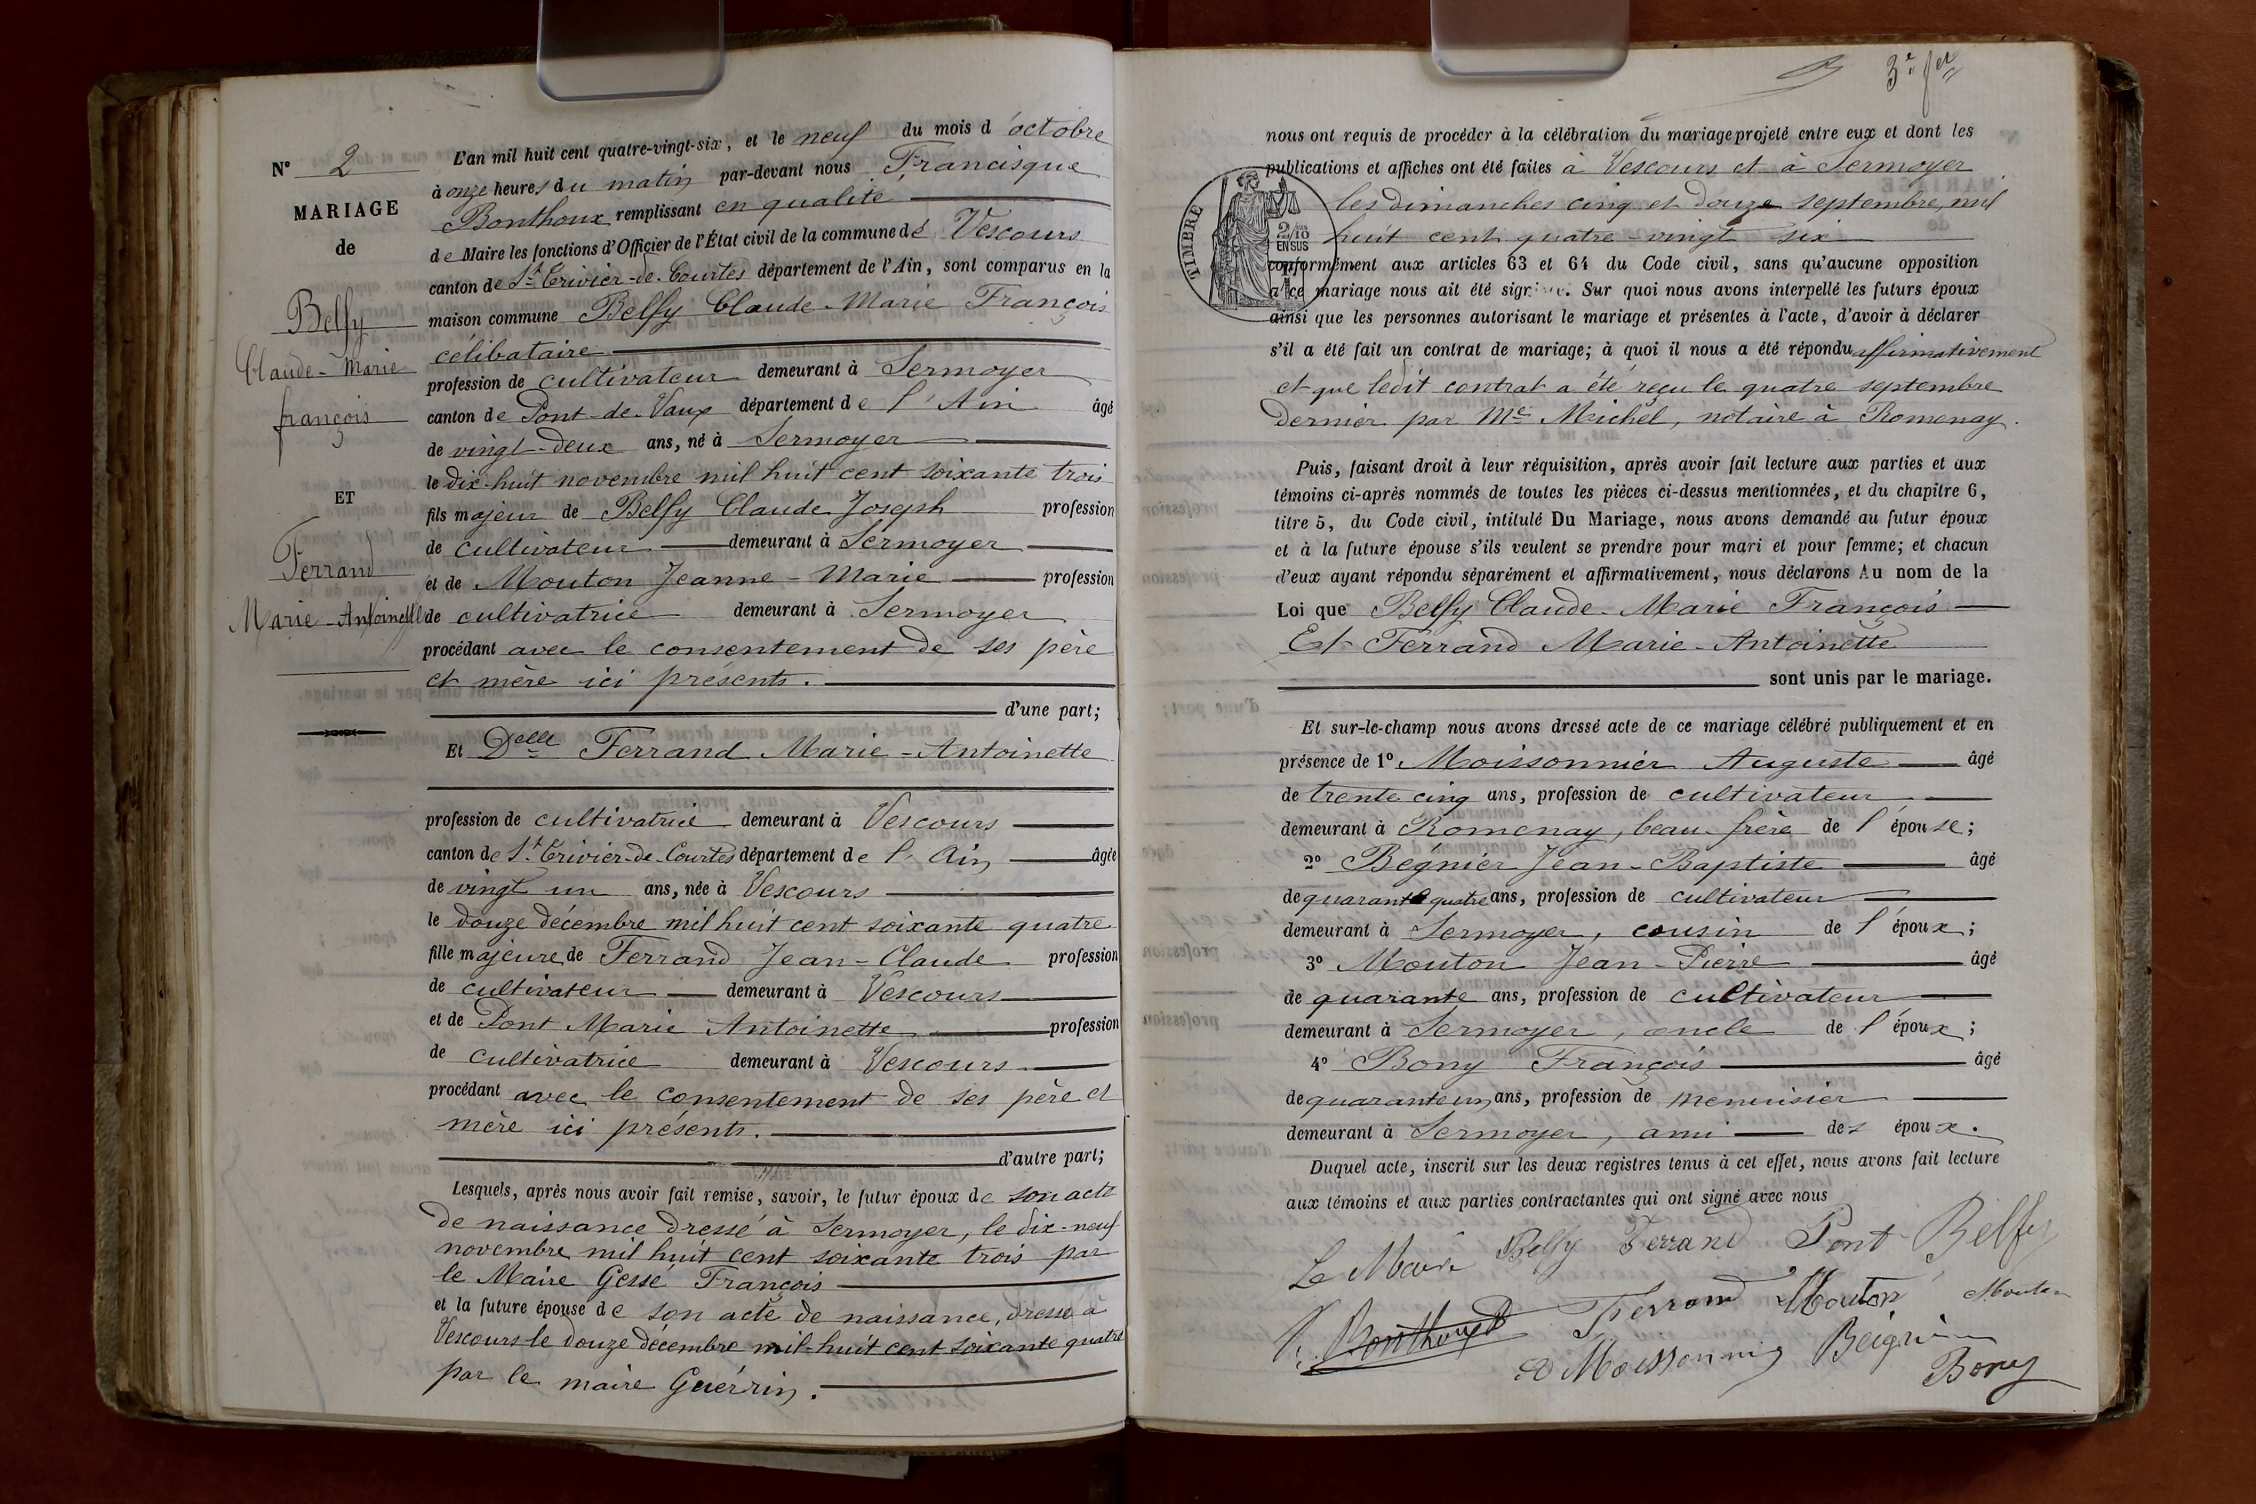 N° 2
MARIAGE
de
Belfy
Claude-Marie
françois
ET
Ferrand
Marie-Antoinette
L'an mil huit cent quatre-vingt-six, et le neuf du mois d'octobre
à onze heures du matin par-devant nous Francisque
Bonthoux remplissant en qualité
de Maire les fonctions d'Officier de l'État civil de la commune de Vescours
canton de St Trivier-de-Courtes département de l'Ain, sont comparus en la
maison commune Belfy Claude-Marie François
célibataire
profession de cultivateur demeurant à Sermoyer
canton de Pont-de-Vaux département de l'Ain âgé
de vingt-deux ans, né à Sermoyer
le dix-huit novembre mil huit cent soixante trois
fils majeur de Belfy Claude Joseph profession
de cultivateur demeurant à Sermoyer
et de Mouton Jeanne-Marie profession
de cultivatrice demeurant à Sermoyer
procédant avec le consentement de ses père
et mère ici présents.
d'une part;
Et Delle Ferrand Marie-Antoinette
profession de cultivatrice demeurant à Vescours
canton de St Trivier-de-Courtes département de l'Ain âgée
de vingt un ans, née à Vescours
le douze décembre mil huit cent soixante quatre
fille majeure de Ferrand Jean-Claude profession
de cultivateur demeurant à Vescours
et de Pont Marie Antoinette profession
de cultivatrice demeurant à Vescours
procédant avec le consentement de ses père et
mère ici présents.
d'autre part;
Lesquels, après nous avoir fait remise, savoir, le futur époux de son acte
de naissance dressé à Sermoyer, le dix-neuf
novembre mil huit cent soixante trois par
le Maire Gessé François
et la future épouse de son acte de naissance, dressé à
Vescours le douze décembre mil-huit cent soixante quatre
par le maire Guérrin.
nous ont requis de procéder à la célébration du mariage projeté entre eux et dont les
publications et affiches ont été faites à Vescours et à Sermoyer
les dimanches cinq et douze septembre mil
huit cent quatre-vingt six
TIMBRE
2/10
EN SUS
conformément aux articles 63 et 64 du Code civil, sans qu'aucune opposition
a ce mariage nous ait été signifiée. Sur quoi nous avons interpellé les futurs époux
ainsi que les personnes autorisant le mariage et présentes à l'acte, d'avoir à déclarer
s'il a été fait un contrat de mariage; à quoi il nous a été répondu affirmativement
et que ledit contrat a été reçu le quatre septembre
dernier par Me Michel, notaire à Romenay.
Puis, faisant droit à leur réquisition, après avoir fait lecture aux parties et aux
témoins ci-après nommés de toutes les pièces ci-dessus mentionnées, et du chapitre 6,
titre 5, du Code civil, intitulé Du Mariage, nous avons demandé au futur époux
et à la future épouse s'ils veulent se prendre pour mari et pour femme; et chacun
d'eux ayant répondu séparément et affirmativement, nous déclarons Au nom de la
Loi que Belfy Claude-Marie François
Et Ferrand Marie-Antoinette
sont unis par le mariage.
Et sur-le-champ nous avons dressé acte de ce mariage célébré publiquement et en
présence de 1° Moissonnier Auguste âgé
de trente cinq ans, profession de cultivateur
demeurant à Romenay, beau-frère de l'épouse;
2° Bégnier Jean-Baptiste âgé
de quarante quatre ans, profession de cultivateur
demeurant à Sermoyer, cousin de l'époux;
3° Mouton Jean-Pierre âgé
de quarante ans, profession de cultivateur
demeurant à Sermoyer, oncle de l'époux;
4° Bony François âgé
de quarante un ans, profession de menuisier
demeurant à Sermoyer, ami des époux.
Duquel acte, inscrit sur les deux registres tenus à cet effet, nous avons fait lecture
aux témoins et aux parties contractantes qui ont signé avec nous
Le Maire Belfy Ferrand Pont Belfy
Bonthoux Ferrand Mouton Mouton
Moissonnier Beignier
Bony